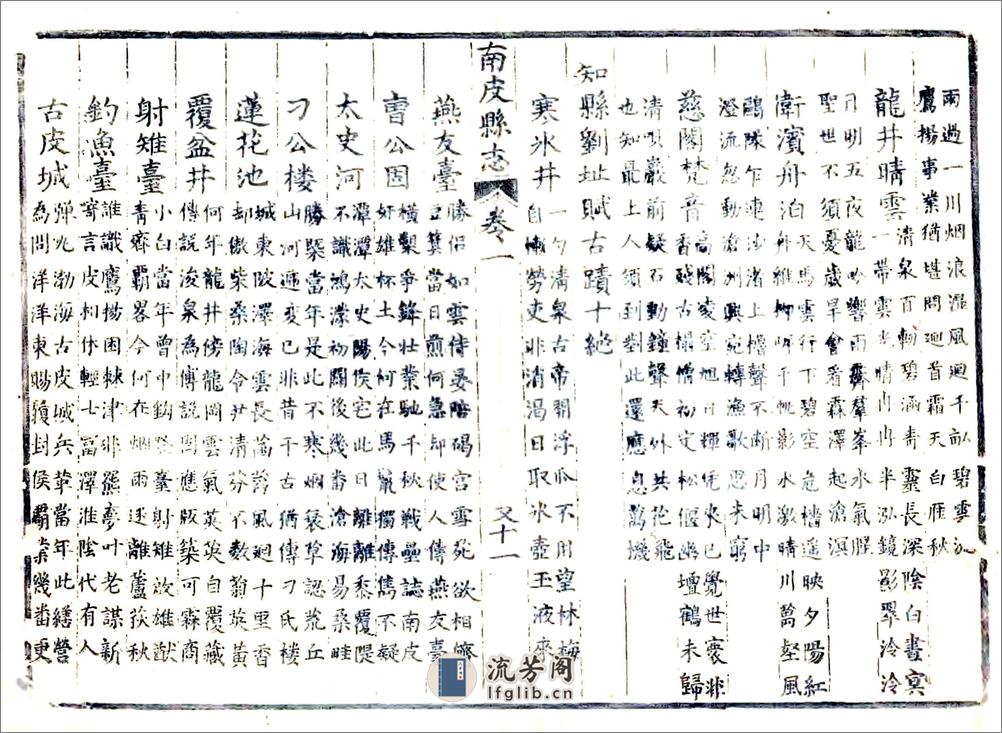 雨過一川烟浪濕風迴千畝碧雲流
鷹揚事業猶堪問迴首霜天白雁秋
龍井晴雲
清泉百軔碧涵青靈長深陰白晝冥
一帶雲光晴冉冉半泓鏡影翠泠泠
月明五夜龍吟響雨霽羣峯水氣腥
聖世不須憂歲旱會看霖澤起滄溟
衛濱舟泊
天馬雲行下碧空危檣遥映夕陽紅
舟維柳岸千帆影水激晴川萬壑風
鷗隊乍連沙渚上櫓聲不断月明中
澄流忽動滄洲興宛轉漁歌思未窮
慈閣梵音
高閣凌空旭日輝已覺世衰非
香殘古榻僧初定松偃幽壇鶴未歸
清唄巖前疑石動鐘聲天外共花飛
也知最上人須到對此還應息萬機
知縣劉址賦古蹟十絕
寒氷井
一勺清泉古帝開浮瓜不用望林梅
自慚勞吏非消渴日取氷壺玉液來
南皮縣志 卷一 又十一
燕友臺
勝侶如雲侍晏陪碣宮雪苑欲相擠
豆萁當日煎何急却使人傳燕友臺
曹公固
橫槊爭鋒壮業馳千秋戰壘誌南皮
奸雄杯土今何在馬鬣獨傳雋不疑
太史河
潭潭太史陽侯宅此日離離黍覆隄
不識鴻濛初闢後幾畨滄海易桑畦
刁公楼
勝槩當年是此不寒烟衰草認荒丘
山河遞变已非昔千古猶傳刁氏楼
蓮花池
城東陂澤海雲長菡萏風迴十里香
却傲柴桑陶令尹清芬不数菊英黄
覆盆井
何年龍井傍龍岡雲氣英英自覆藏
傳說浚泉為傅說間應版築可霖商
射雉臺
小白當年曾中鈎登臺射雉啟雄猷
青齊霸畧今何在烟雨迷離蘆荻秋
釣魚臺
誰識鷹揚困棘津非羆夢叶老謀新
寄言皮札休輕士富澤淮陰代有人
古皮城
彈丸渤海古皮城兵革當年此繕營
為問洋洋東賜履封侯霸業幾番更
流芳阁
lfglib.cn